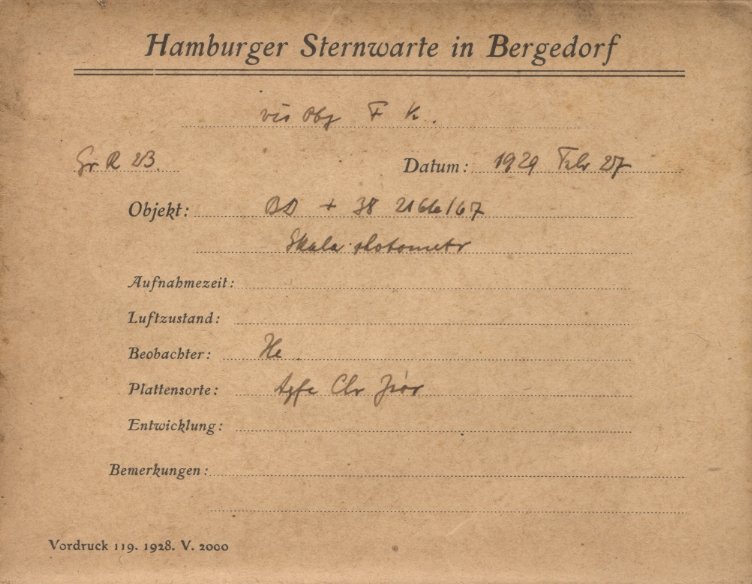 Hamburger Sternwarte in Bergedorf
vis Obj F K.
Gr R 23. Datum: 1929 Febr 27
Objekt: BD + 38 2166/67
Skala photometr
Aufnahmezeit:
Luftzustand:
Beobachter: He.
Plattensorte: Agfa Chr
Entwicklung:
Bemerkungen:
Vordruck 119. 1928. V. 2000